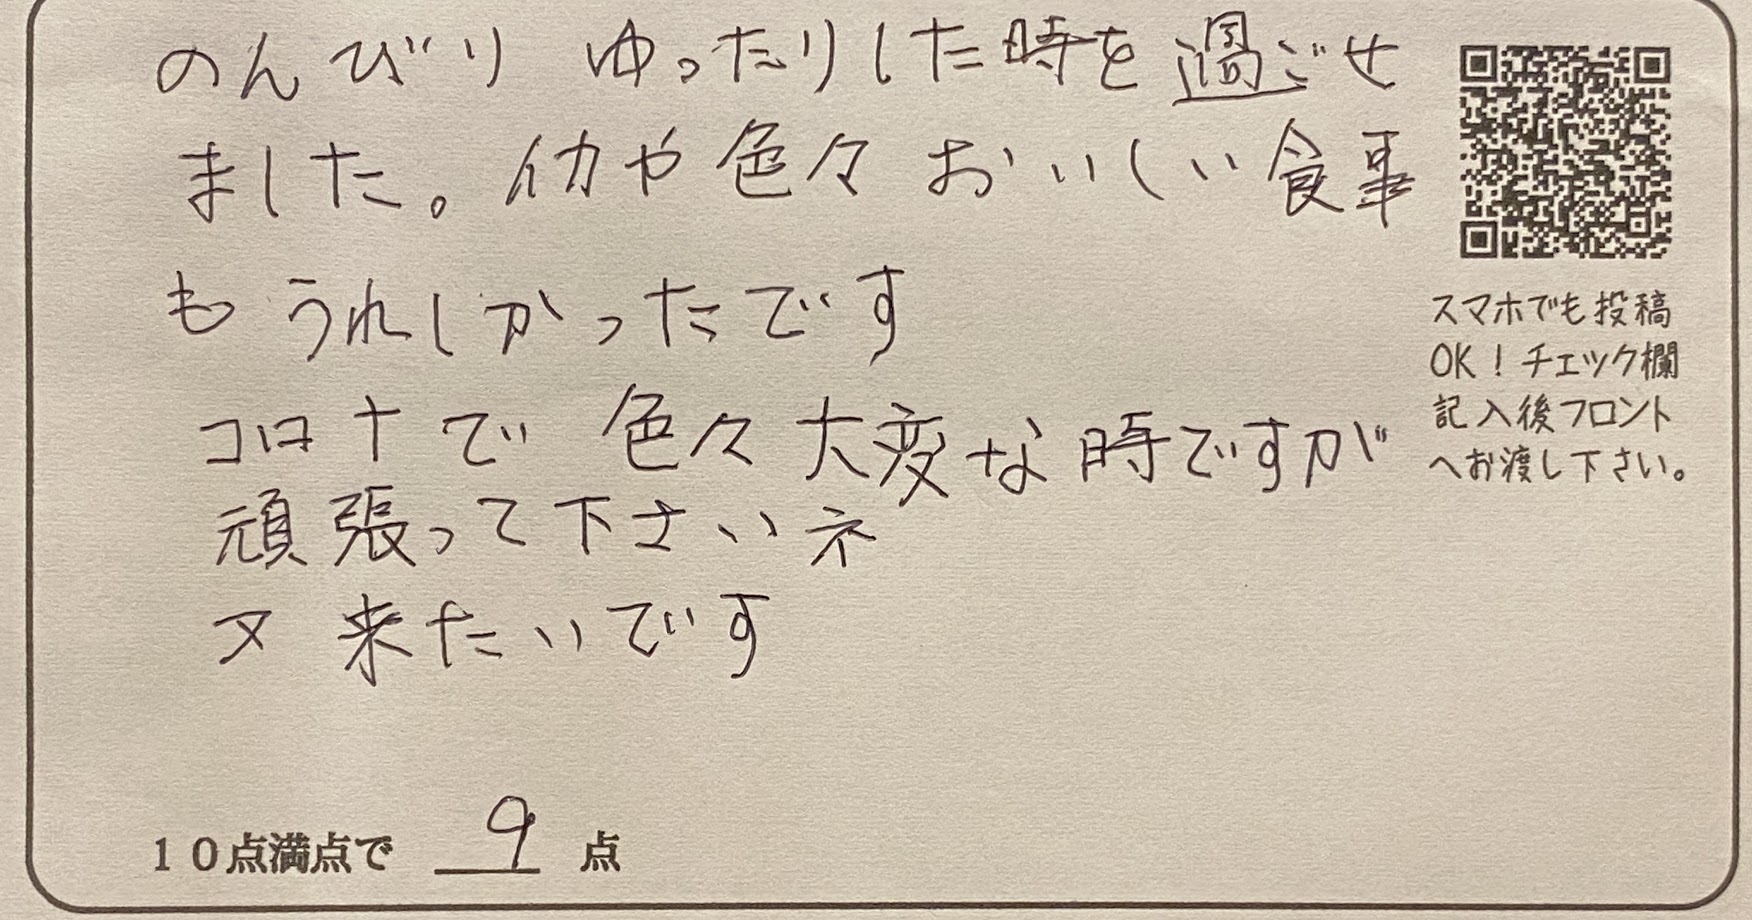 のんびり ゆったりした時を過ごせ
ました。イカや色々おいしい食事
もうれしかったです
コロナで 色々大変な時ですが
頑張って下さいネ
又 来たいです
スマホでも投稿
OK！チェック欄
記入後フロント
へお渡し下さい。
10点満点で 9 点